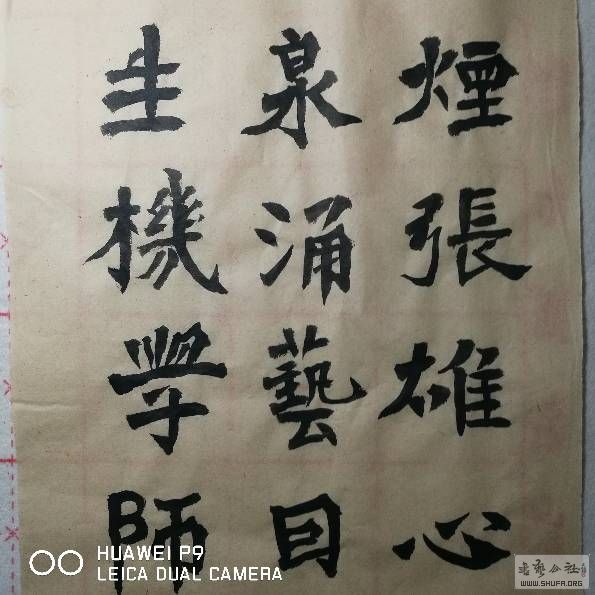 煙張雄心
泉涌藝目
生機學師
HUAWEI P9
LEICA DUAL CAMERA
WWW.SHUFA.ORG